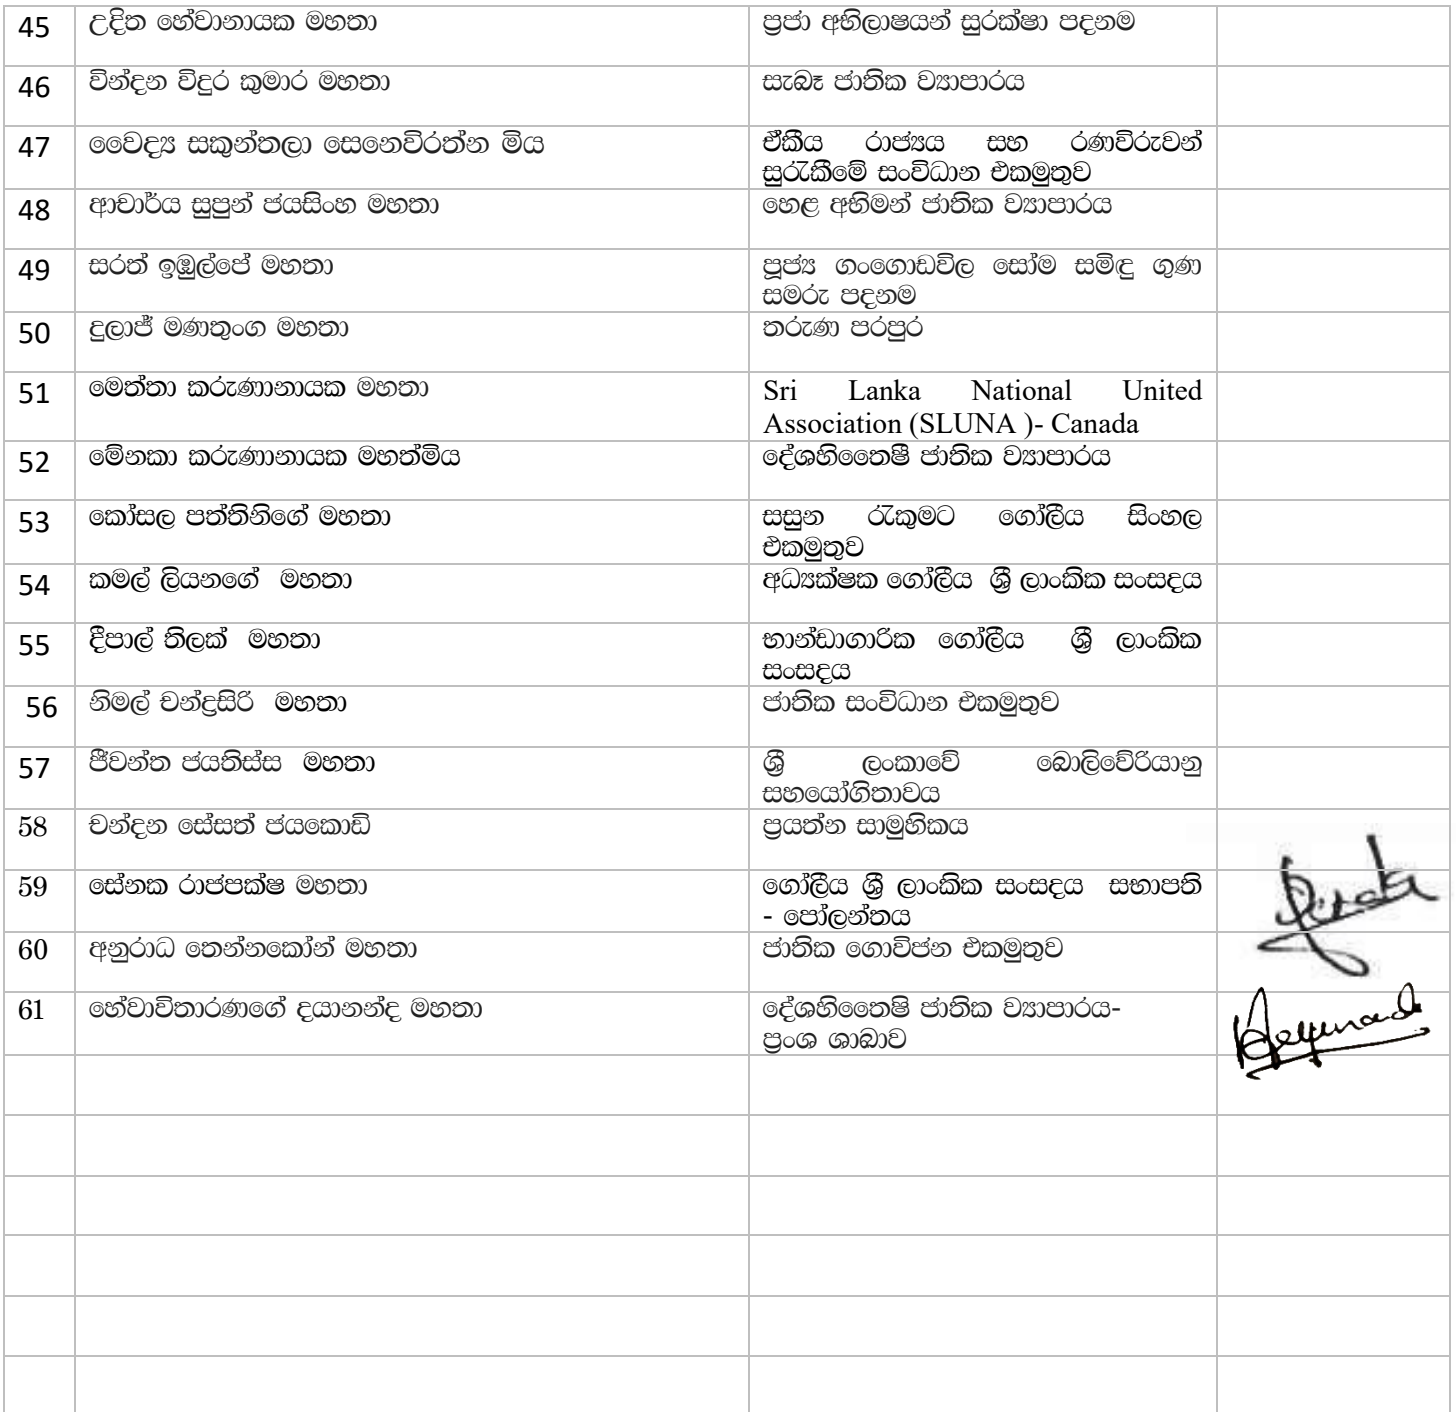 45 උදිත හේවානායක මහතා ප්‍රජා අභිලාෂයන් සුරක්ෂා පදනම
46 වින්දන විදුර කුමාර මහතා සැබෑ ජාතික ව්‍යාපාරය
47 වෛද්‍ය සකුන්තලා සෙනෙවිරත්න මිය ඒකීය රාජ්‍යය සහ රණවිරුවන්
සුරැකීමේ සංවිධාන එකමුතුව
48 ආචාර්ය සුපුන් ජයසිංහ මහතා හෙළ අභිමන් ජාතික ව්‍යාපාරය
49 සරත් ඉඹුල්පේ මහතා පූජ්‍ය ගංගොඩවිල සෝම සමිඳු ගුණ
සමරු පදනම
50 දුලාජ් මණතුංග මහතා තරුණ පරපුර
51 මෙත්තා කරුණානායක මහතා Sri Lanka National United
Association (SLUNA )- Canada
52 මේනකා කරුණානායක මහත්මිය දේශහිතෛෂී ජාතික ව්‍යාපාරය
53 කෝසල පත්තිනිගේ මහතා සසුන රැකුමට ගෝලීය සිංහල
එකමුතුව
54 කමල් ලියනගේ මහතා අධ්‍යක්ෂක ගෝලීය ශ්‍රී ලාංකික සංසදය
55 දීපාල් තිලක් මහතා භාන්ඩාගාරික ගෝලීය ශ්‍රී ලාංකික
සංසදය
56 නිමල් චන්ද්‍රසිරි මහතා ජාතික සංවිධාන එකමුතුව
57 ජීවන්ත ජයතිස්ස මහතා ශ්‍රී ලංකාවේ බොලිවේරියානු
සහයෝගිතාවය
58 චන්දන සේසත් ජයකොඩි ප්‍රයත්න සාමුහිකය
59 සේනක රාජපක්ෂ මහතා ගෝලීය ශ්‍රී ලාංකික සංසදය සභාපති
- පෝලන්තය
60 අනුරාධ තෙන්නකෝන් මහතා ජාතික ගොවිජන එකමුතුව
61 හේවාවිතාරණගේ දයානන්ද මහතා දේශහිතෛෂි ජාතික ව්‍යාපාරය-
ප්‍රංශ ශාඛාව